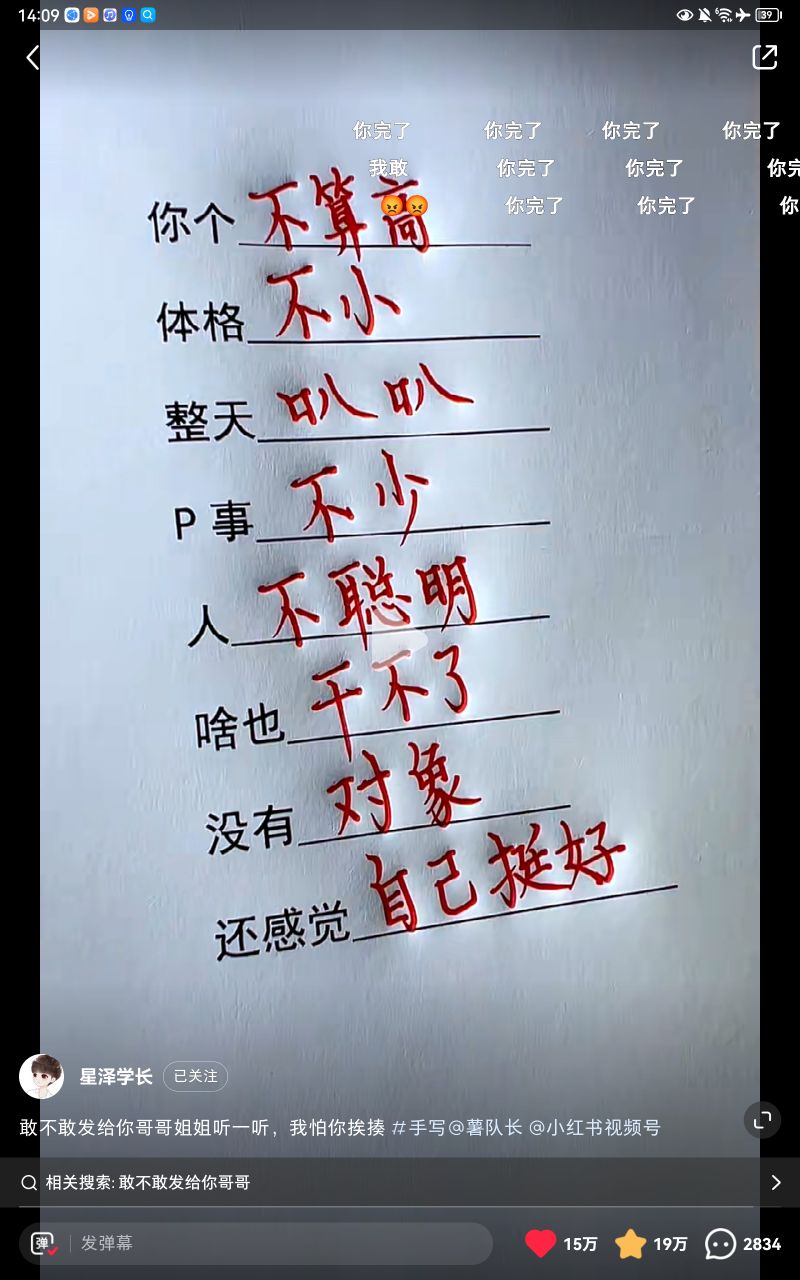 14:09
39
你完了 你完了 你完了 你完了
我敢 你完了 你完了 你完
😡😡 你完了 你完了 你
你个不算高
体格不小
整天叭叭
P事不少
人不聪明
啥也干不了
没有对象
还感觉自己挺好
星泽学长 已关注
敢不敢发给你哥哥姐姐听一听，我怕你挨揍 #手写@薯队长 @小红书视频号
相关搜索: 敢不敢发给你哥哥
弹 发弹幕 15万 19万 2834